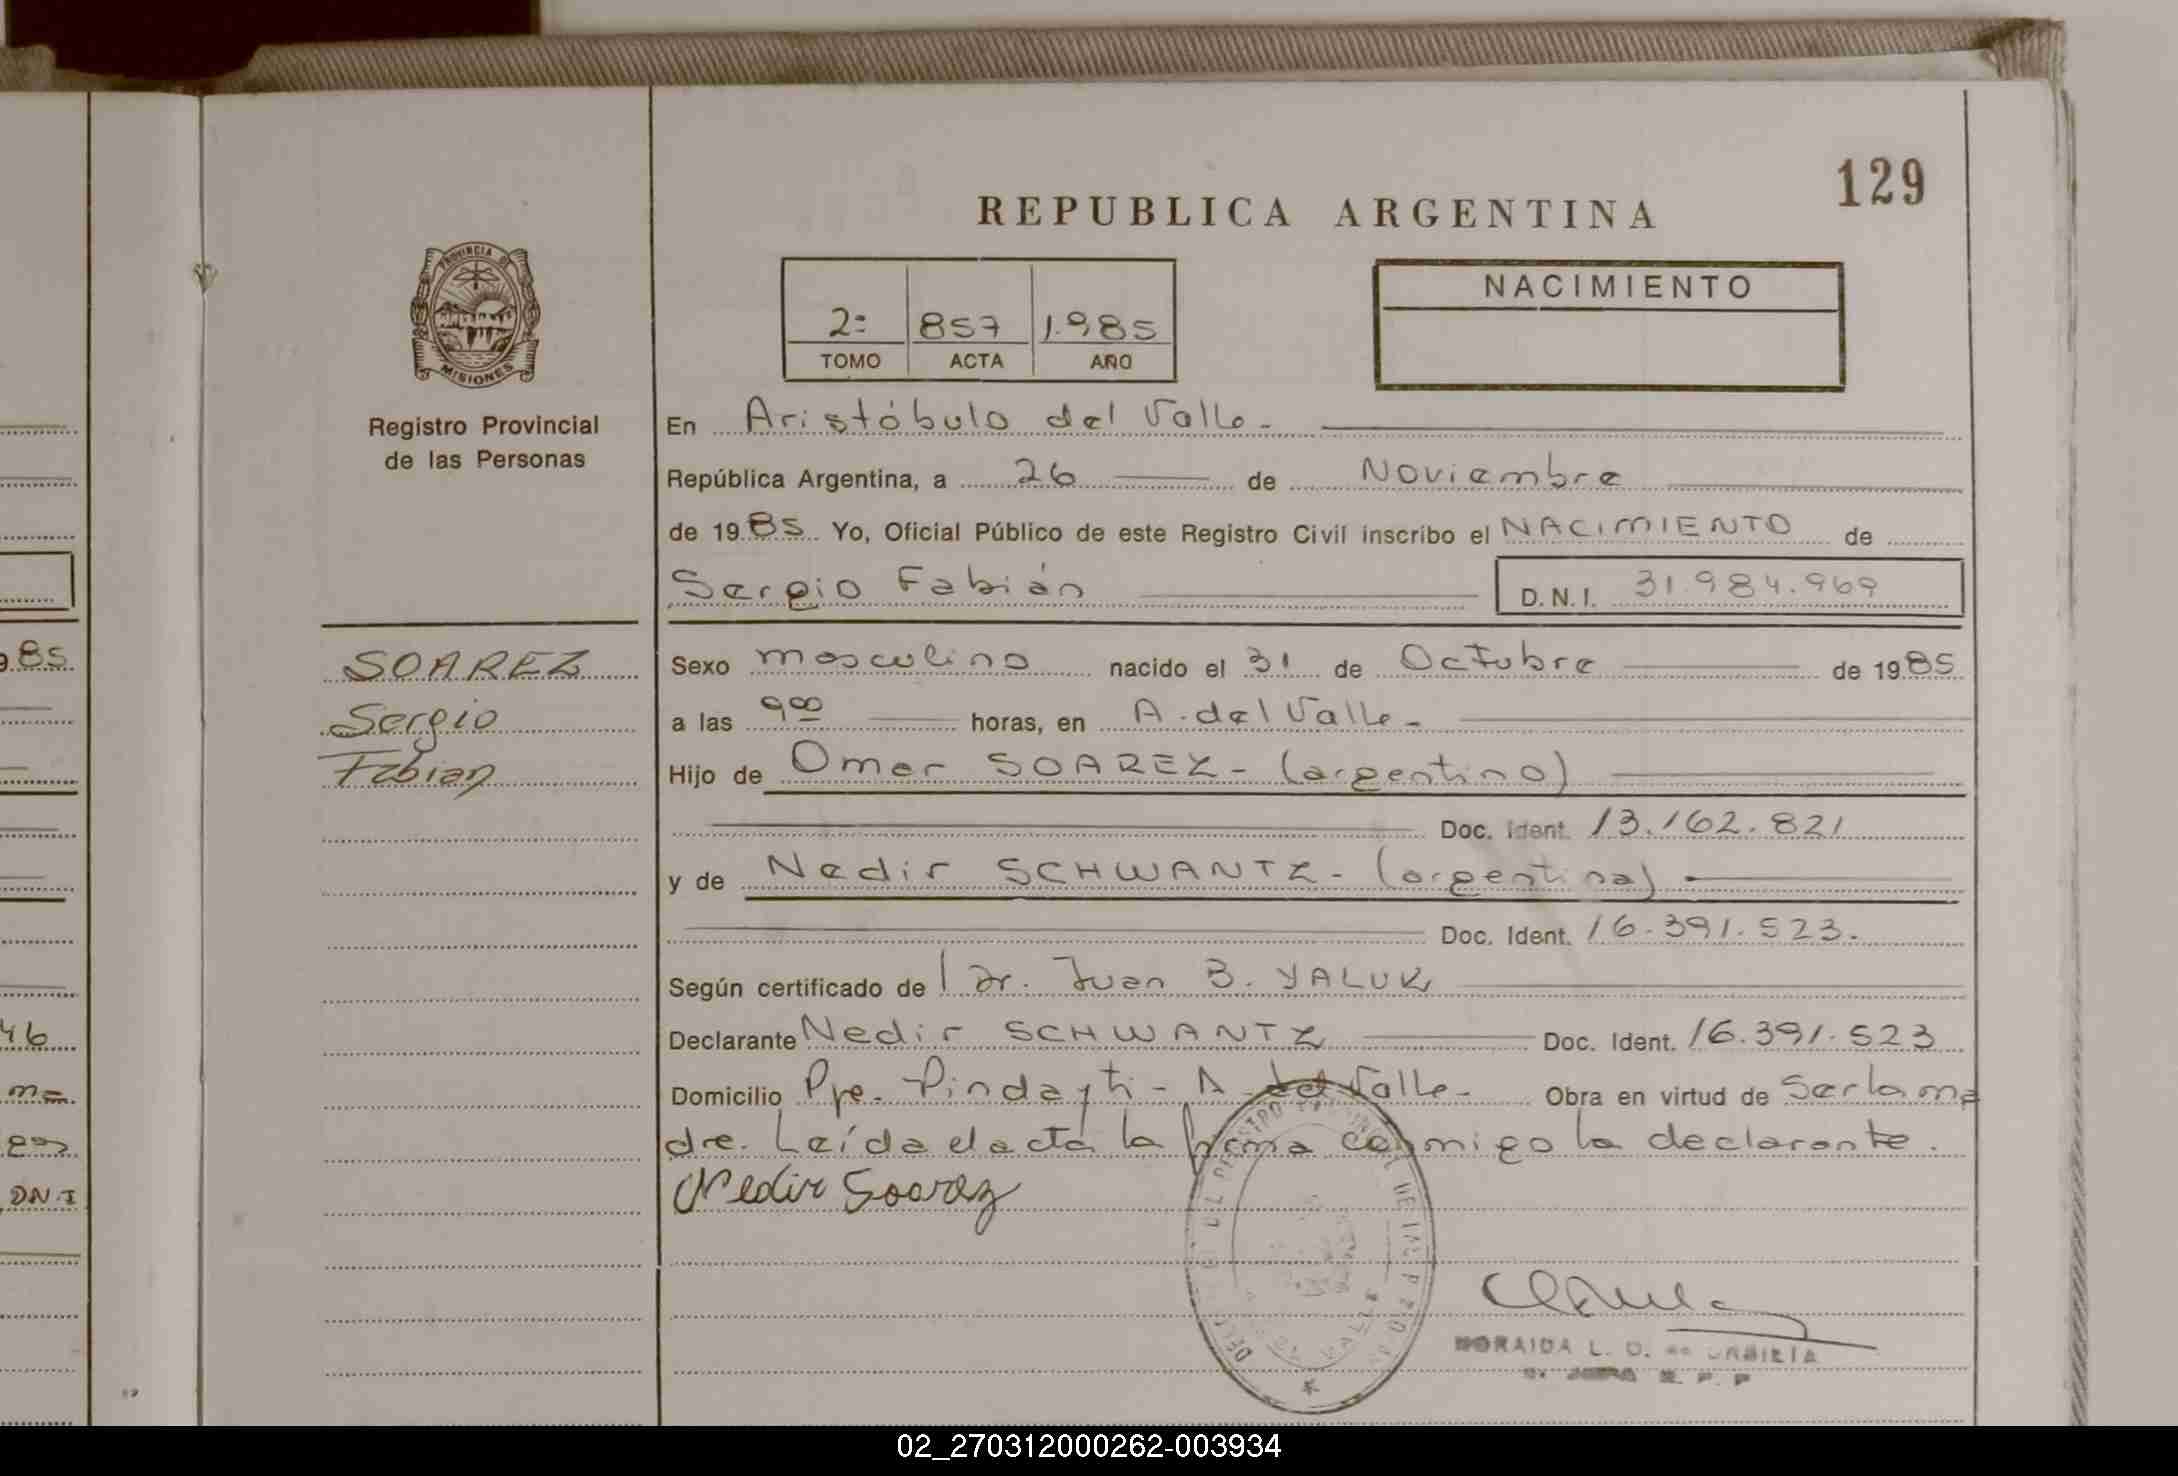 129
REPUBLICA ARGENTINA
PROVINCIA DE
MISIONES
Registro Provincial
de las Personas
2º 857 1.985
TOMO ACTA AÑO
NACIMIENTO
En Aristóbulo del Valle-
República Argentina, a 26 de Noviembre
de 1985 Yo, Oficial Público de este Registro Civil inscribo el NACIMIENTO de
Sergio Fabián D.N.I. 31.984.969
SOAREZ
Sergio
Fabian
Sexo masculino nacido el 31 de Octubre de 1985
a las 9 00 horas, en A. del Valle-
Hijo de Omar SOAREZ- (argentino)
Doc. Ident. 13.162.821
y de Nedir SCHWANTZ- (argentina)
Doc. Ident. 16.391.523.
Según certificado de Dr. Juan B. YALUK
Declarante Nedir SCHWANTZ Doc. Ident. 16.391.523
Domicilio Pje. Pindayti- A del Valle- Obra en virtud de Ser la ma
dre. Leída el acta la firma conmigo la declarante.
Nedir Soarez
VALLE
NORAIDA L. O. de
02_270312000262-003934
985
46
ma
DN.I